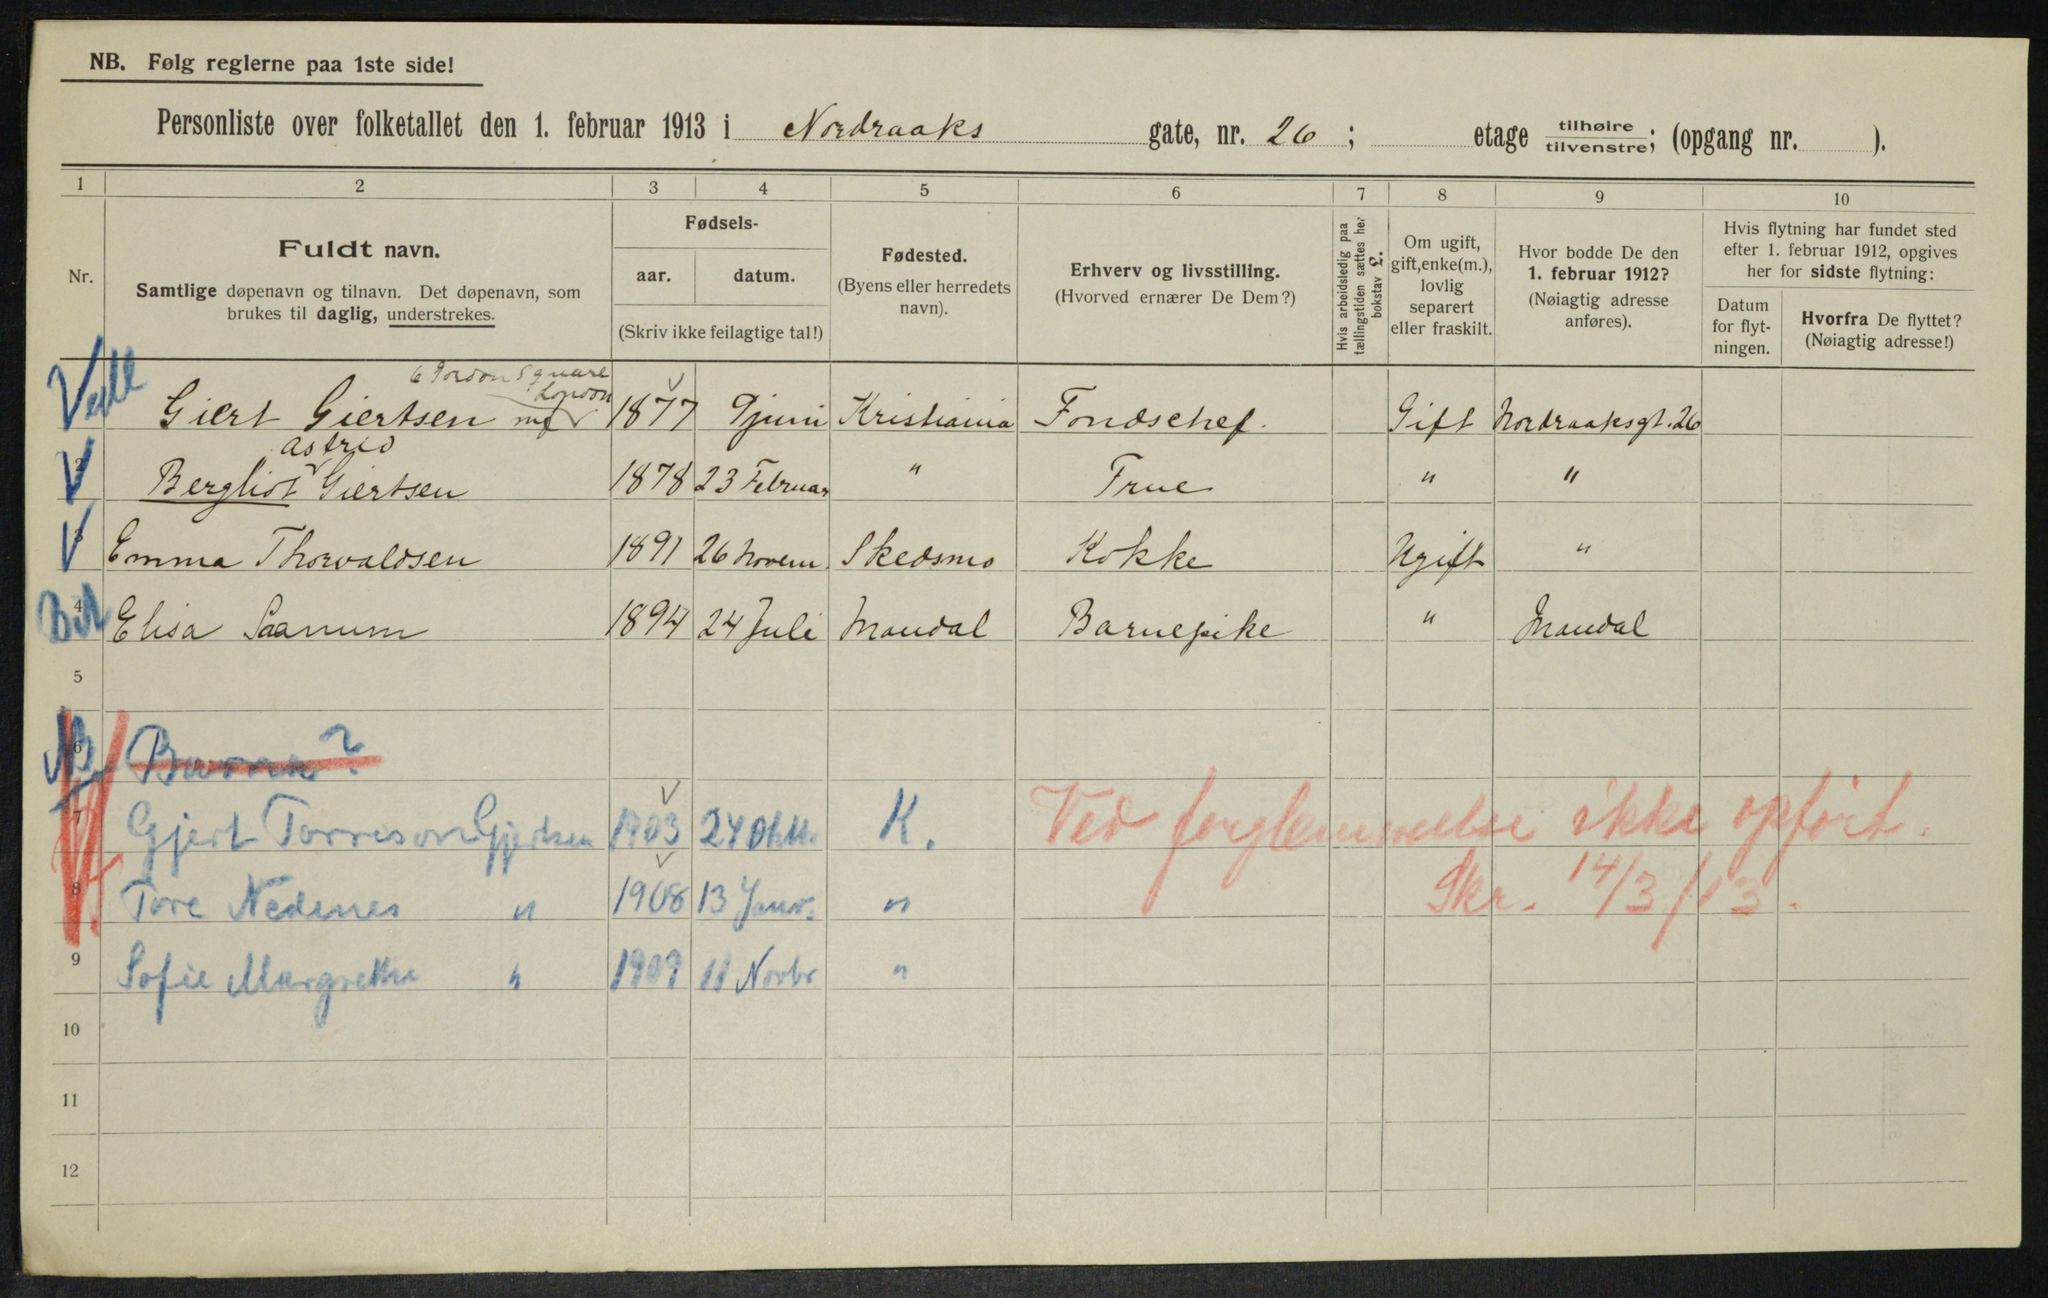 NB. Følg reglerne paa 1ste side!
Personliste over folketallet den 1. februar 1913 i Nordraaks gate, nr. 26 ; etage tilhøire tilvenstre; (opgang nr. ).
1 2 3 4 5 6 7 8 9 10
Nr.
Fuldt navn.
Samtlige døpenavn og tilnavn. Det døpenavn, som
brukes til daglig, understrekes.
Fødsels-
aar. datum.
(Skriv ikke feilagtige tal!)
Fødested.
(Byens eller herredets
navn).
Erhverv og livsstilling.
(Hvorved ernærer De Dem?)
Hvis arbeidsledig paa
tællingstiden sættes her
bokstav
Om ugift,
gift, enke(m.),
lovlig
separert
eller fraskilt.
Hvor bodde De den
1. februar 1912?
(Nøiagtig adresse
anføres).
Hvis flytning har fundet sted
efter 1. februar 1912, opgives
her for sidste flytning:
Datum
for flyt-
ningen.
Hvorfra De flyttet?
(Nøiagtig adresse!)
6 Gordon Square
London
Giert Giertsen 1877 9 juni Kristiania Fondschef. Gift Nordraaksgt. 26
Astrid
2 Bergliot Giertsen 1878 23 Februar " Frue " "
3 Emma Thorvaldsen 1891 26 Novem. Skedsmo Kokke Ugift "
4 Elisa Saanum 1894 24 Juli Mandal Barnepike " Mandal
5
NB
6 Barna?
7 Gjert Torreson Gjertsen 1903 24 Oktb. K. Ved forglemmelse ikke opført.
8 Tore Nedenes " 1908 13 Janr. " Skr. 14/3/13.
9 Sofie Margrethe " 1909 11 Novbr "
10
11
12